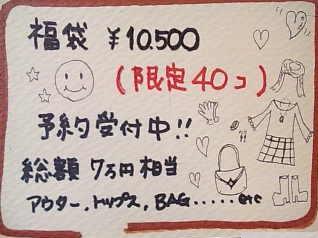 福袋 ¥10.500
(限定40コ)
予約受付中!!
総額 7万円相当
アウター.トップス.BAG.....etc